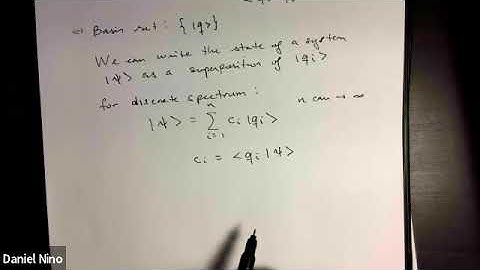 Basis set: { |q⟩ }
We can write the state of a system
|ψ⟩ as a superposition of |qi⟩
for discrete spectrum:
|ψ⟩ = n∑i=1 ci |qi⟩ n can → ∞
ci = <qi|ψ⟩
Daniel Nino